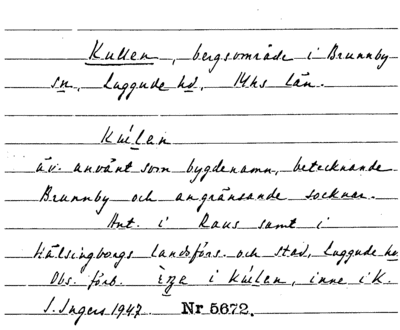 Kullen, bergsområde i Brunnby
sn, Luggude hd, Mhs län.
Kúlen
äv. använt som bygdenamn, betecknande
Brunnby och angränsande socknar.
Ant. i Raus samt i
Hälsingborgs landsförs. och stad, Luggude hd.
Obs. förb. i Kúlen, inne i K.
I. Ingers 1947. Nr 5672.